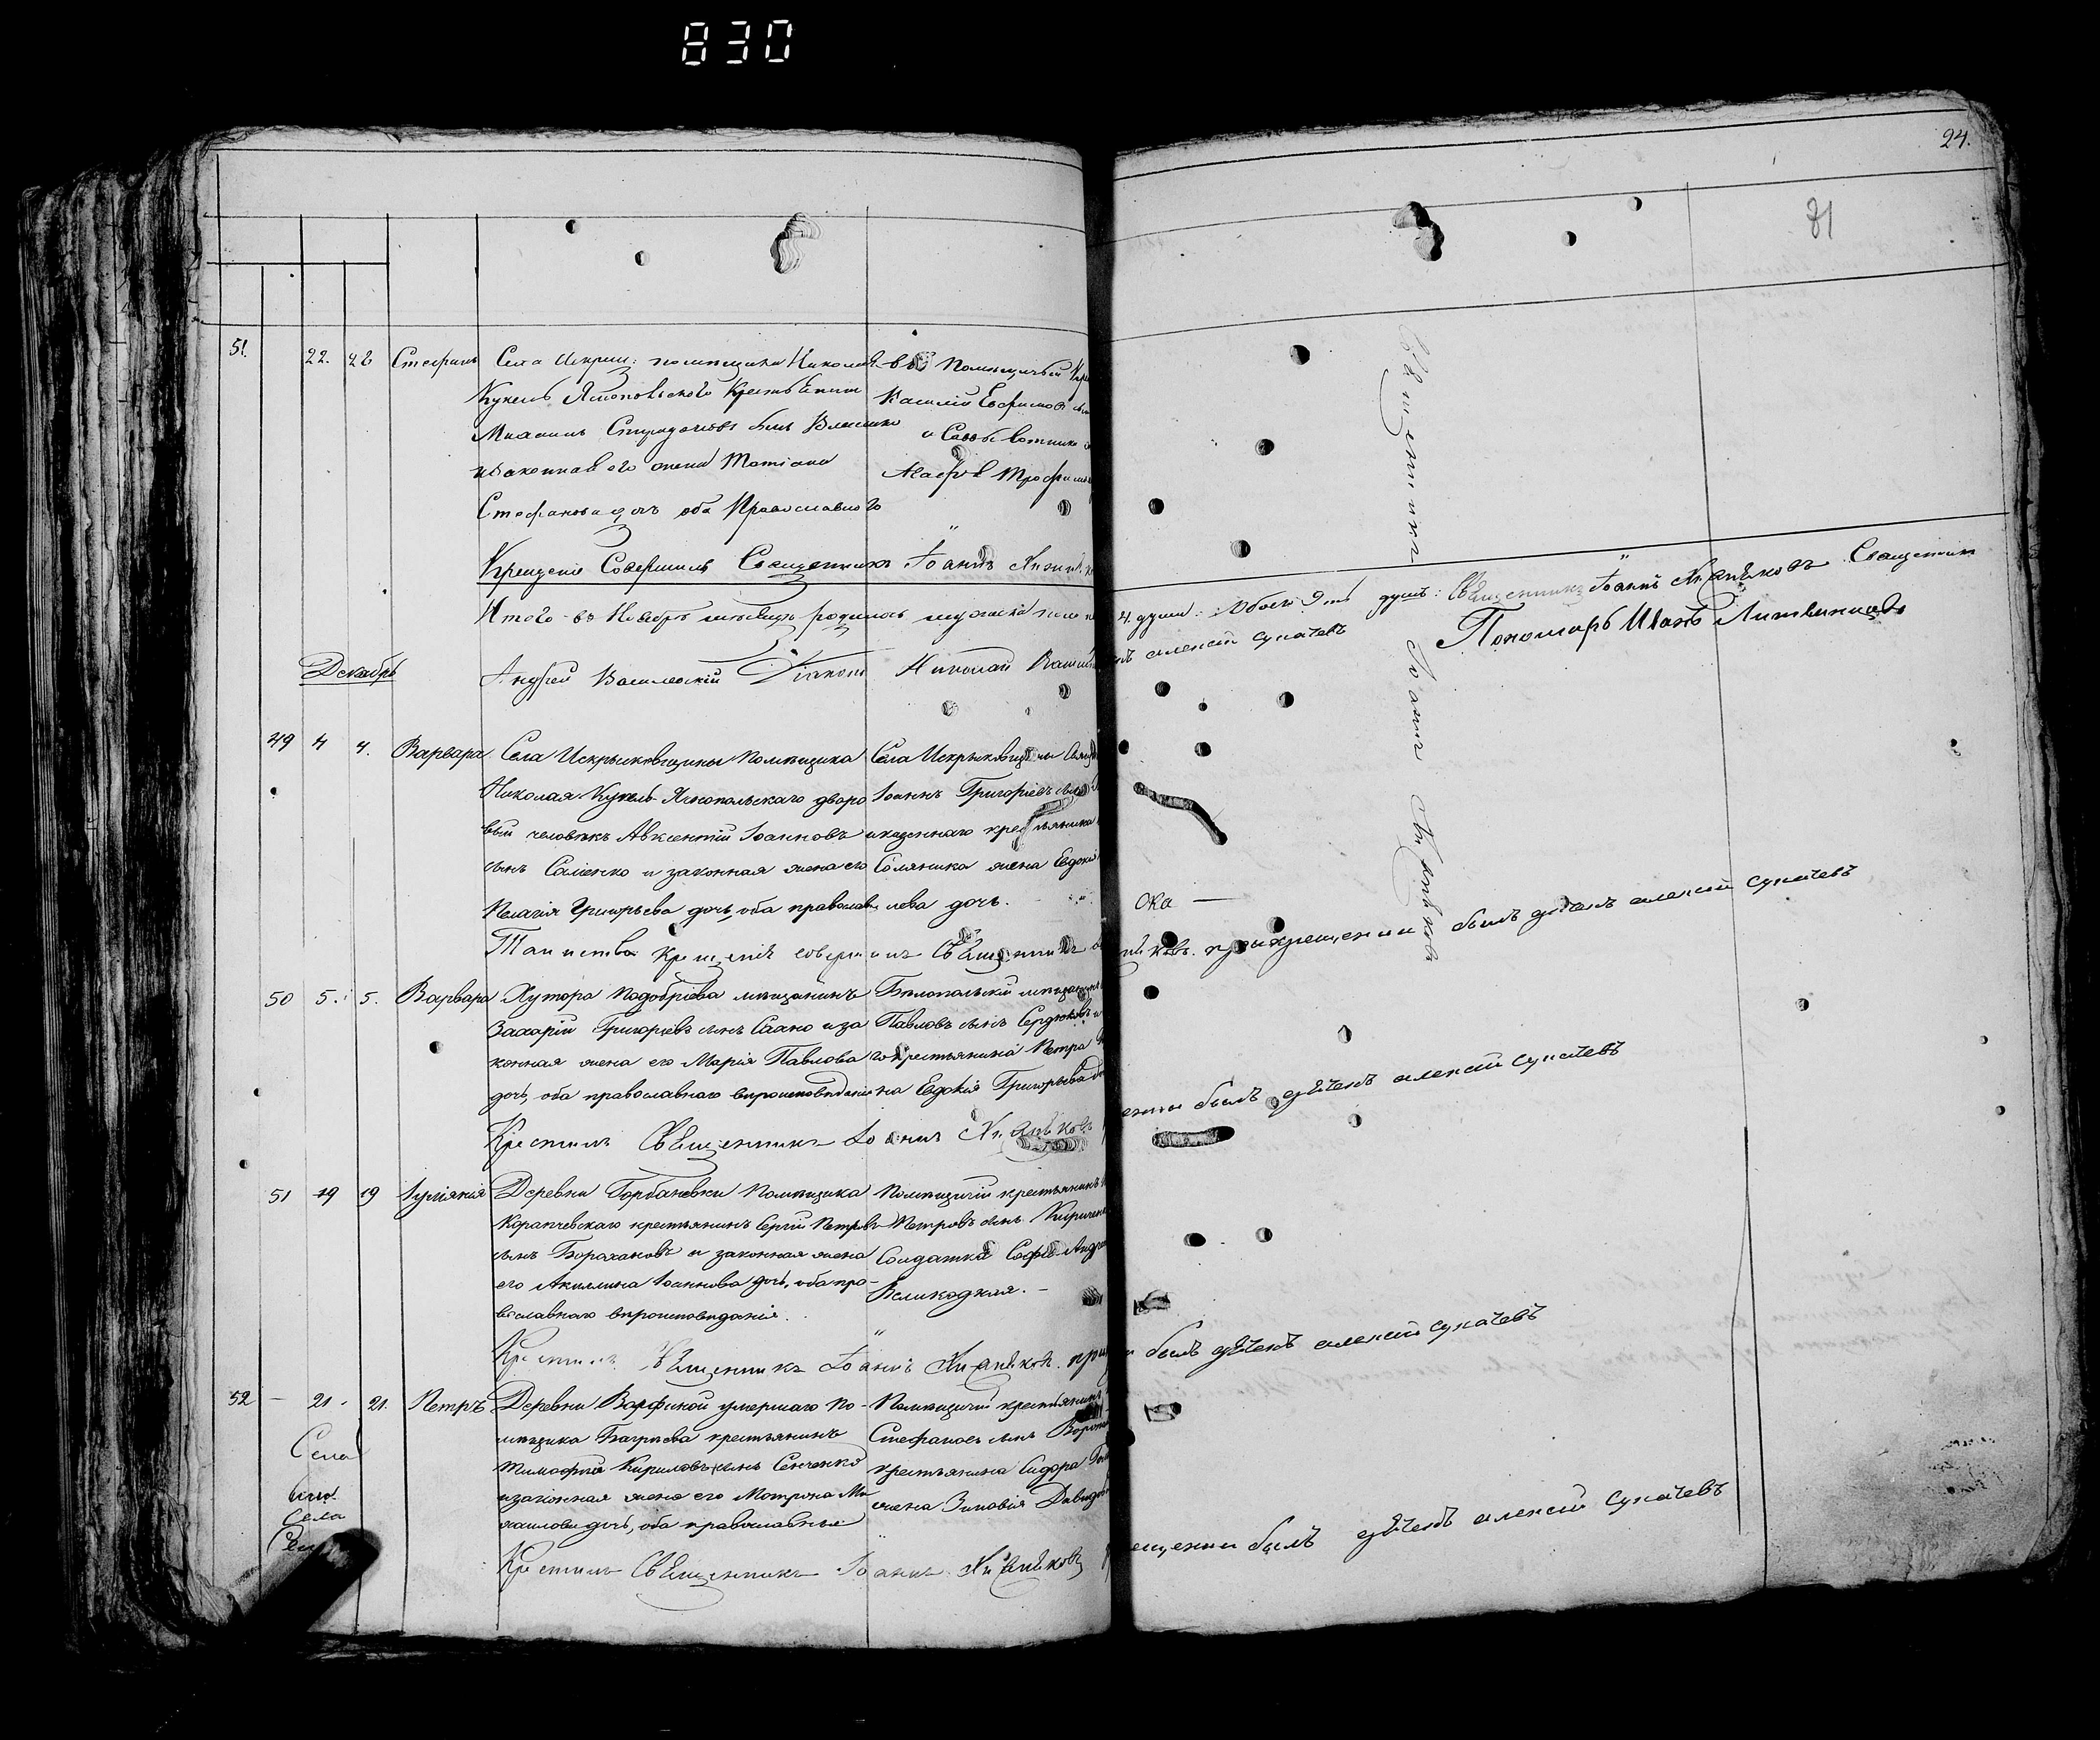 830
24.
81
51. 22. 22 Стефанъ Села Искриш: помѣщика Николая
Кукель Яснопольского Крестьянин
Михаилъ Спиридоновъ сынъ
и законная его жена Татиана
Стефанова дочь оба Православного
Помѣщичьи
Василій Евфимов
Трофим
Крещеніе Совершилъ Священникъ Іоаннъ
Итого въ Ноябрѣ месяцѣ родилось мужеска пола
4. души: Обоего 9ть душъ: Священникъ Іоаннъ Священник
Андрей Василевскій Діаконъ Николай
алексѣй сукачевъ Пономарь Иванъ Литвиновъ
Священникъ Іоаннъ
Декабрь
49 4 4. Варвара Села Искрысковщины Помѣщика
Николая Кукель Яснопольскаго дворо
вый человѣкъ Авксентій Іоанновъ
сынъ Саліенко и законная жена его
Пелагія Григорьева дочь, оба православ
Села Искрысковщины
Іоаннъ Григоріевъ сынъ
и казеннаго крестьянина
Соляника жена Евдокія
лева дочь.
ока —
Таинство крещенія совершилъ Священникъ
при крещеніи былъ дьячекъ алексѣй сукачевъ
50 5. 5. Варвара Хутора Подобріева мѣщанинъ
Захарій Григорьевъ сынъ Саако и за
конная жена его Марія Павлова
дочь, оба православнаго вѣроисповѣданія
Бѣлопольскій мѣщанинъ
Павловъ сынъ Сердюковъ и
крестьянина Петра
на Евдокія Григорьева
Крестилъ Священникъ Іоаннъ
былъ дьячекъ алексѣй сукачевъ
51 19 19 Іуліянія Деревни Горбановки Помѣщика
Корапчевскаго крестьянинъ Сергій Петровъ
сынъ Бороханов и законная жена
его Акилина Іоаннова дочь, оба пра-
вославнаго вѣроисповѣданія.
Помѣщичій крестьянинъ
Петровъ сынъ Кириченк
Солдатка Софія Андре
Великодная. —
Крестилъ Священникъ Іоаннъ при
былъ дьячекъ алексѣй сукачевъ
52 — 21. 21. Петръ Деревни Варфиной умершаго По-
мѣщика Багрѣева крестьянинъ
Тимофей Кириловъ сынъ Сенченко
и законная жена его Матрона Ми
хаилова дочь, оба православные
Помѣщичій крестьянинъ
Стефановъ сынъ Ворон
крестьянина Сидора
жена Зиновія Давидо
Села
Села
Крестилъ Священникъ Іоаннъ
ещении былъ дьячекъ алексѣй сукачевъ